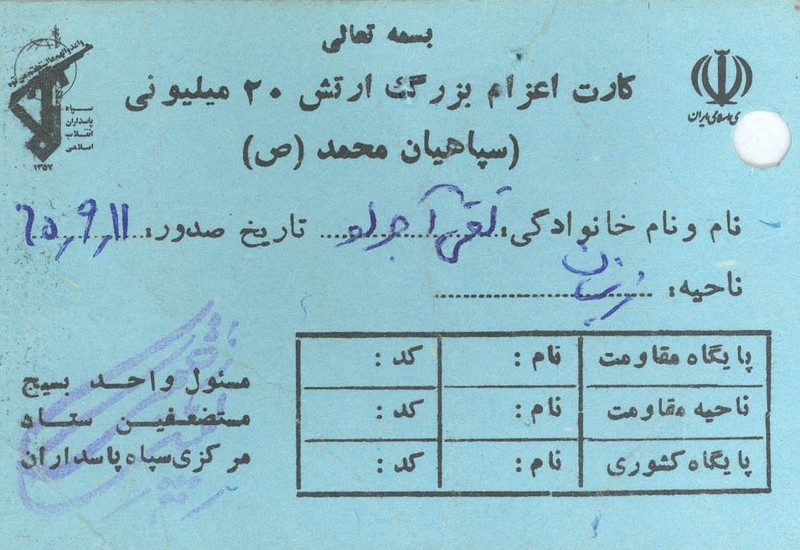 بسمه تعالی
کارت اعزام بزرگ ارتش ۲۰ میلیونی
(سپاهیان محمد (ص)
سپاه
پاسداران
انقلاب
اسلامی
۱۳۵۷
نام و نام خانوادگی: تقی آجرلو تاریخ صدور: ۶۵,۹,۱۱
ناحیه:
پایگاه مقاومت نام: کد:
ناحیه مقاومت نام: کد:
پایگاه کشوری نام: کد:
مسئول واحد بسیج
مستضعفین ستاد
مرکزی سپاه پاسداران